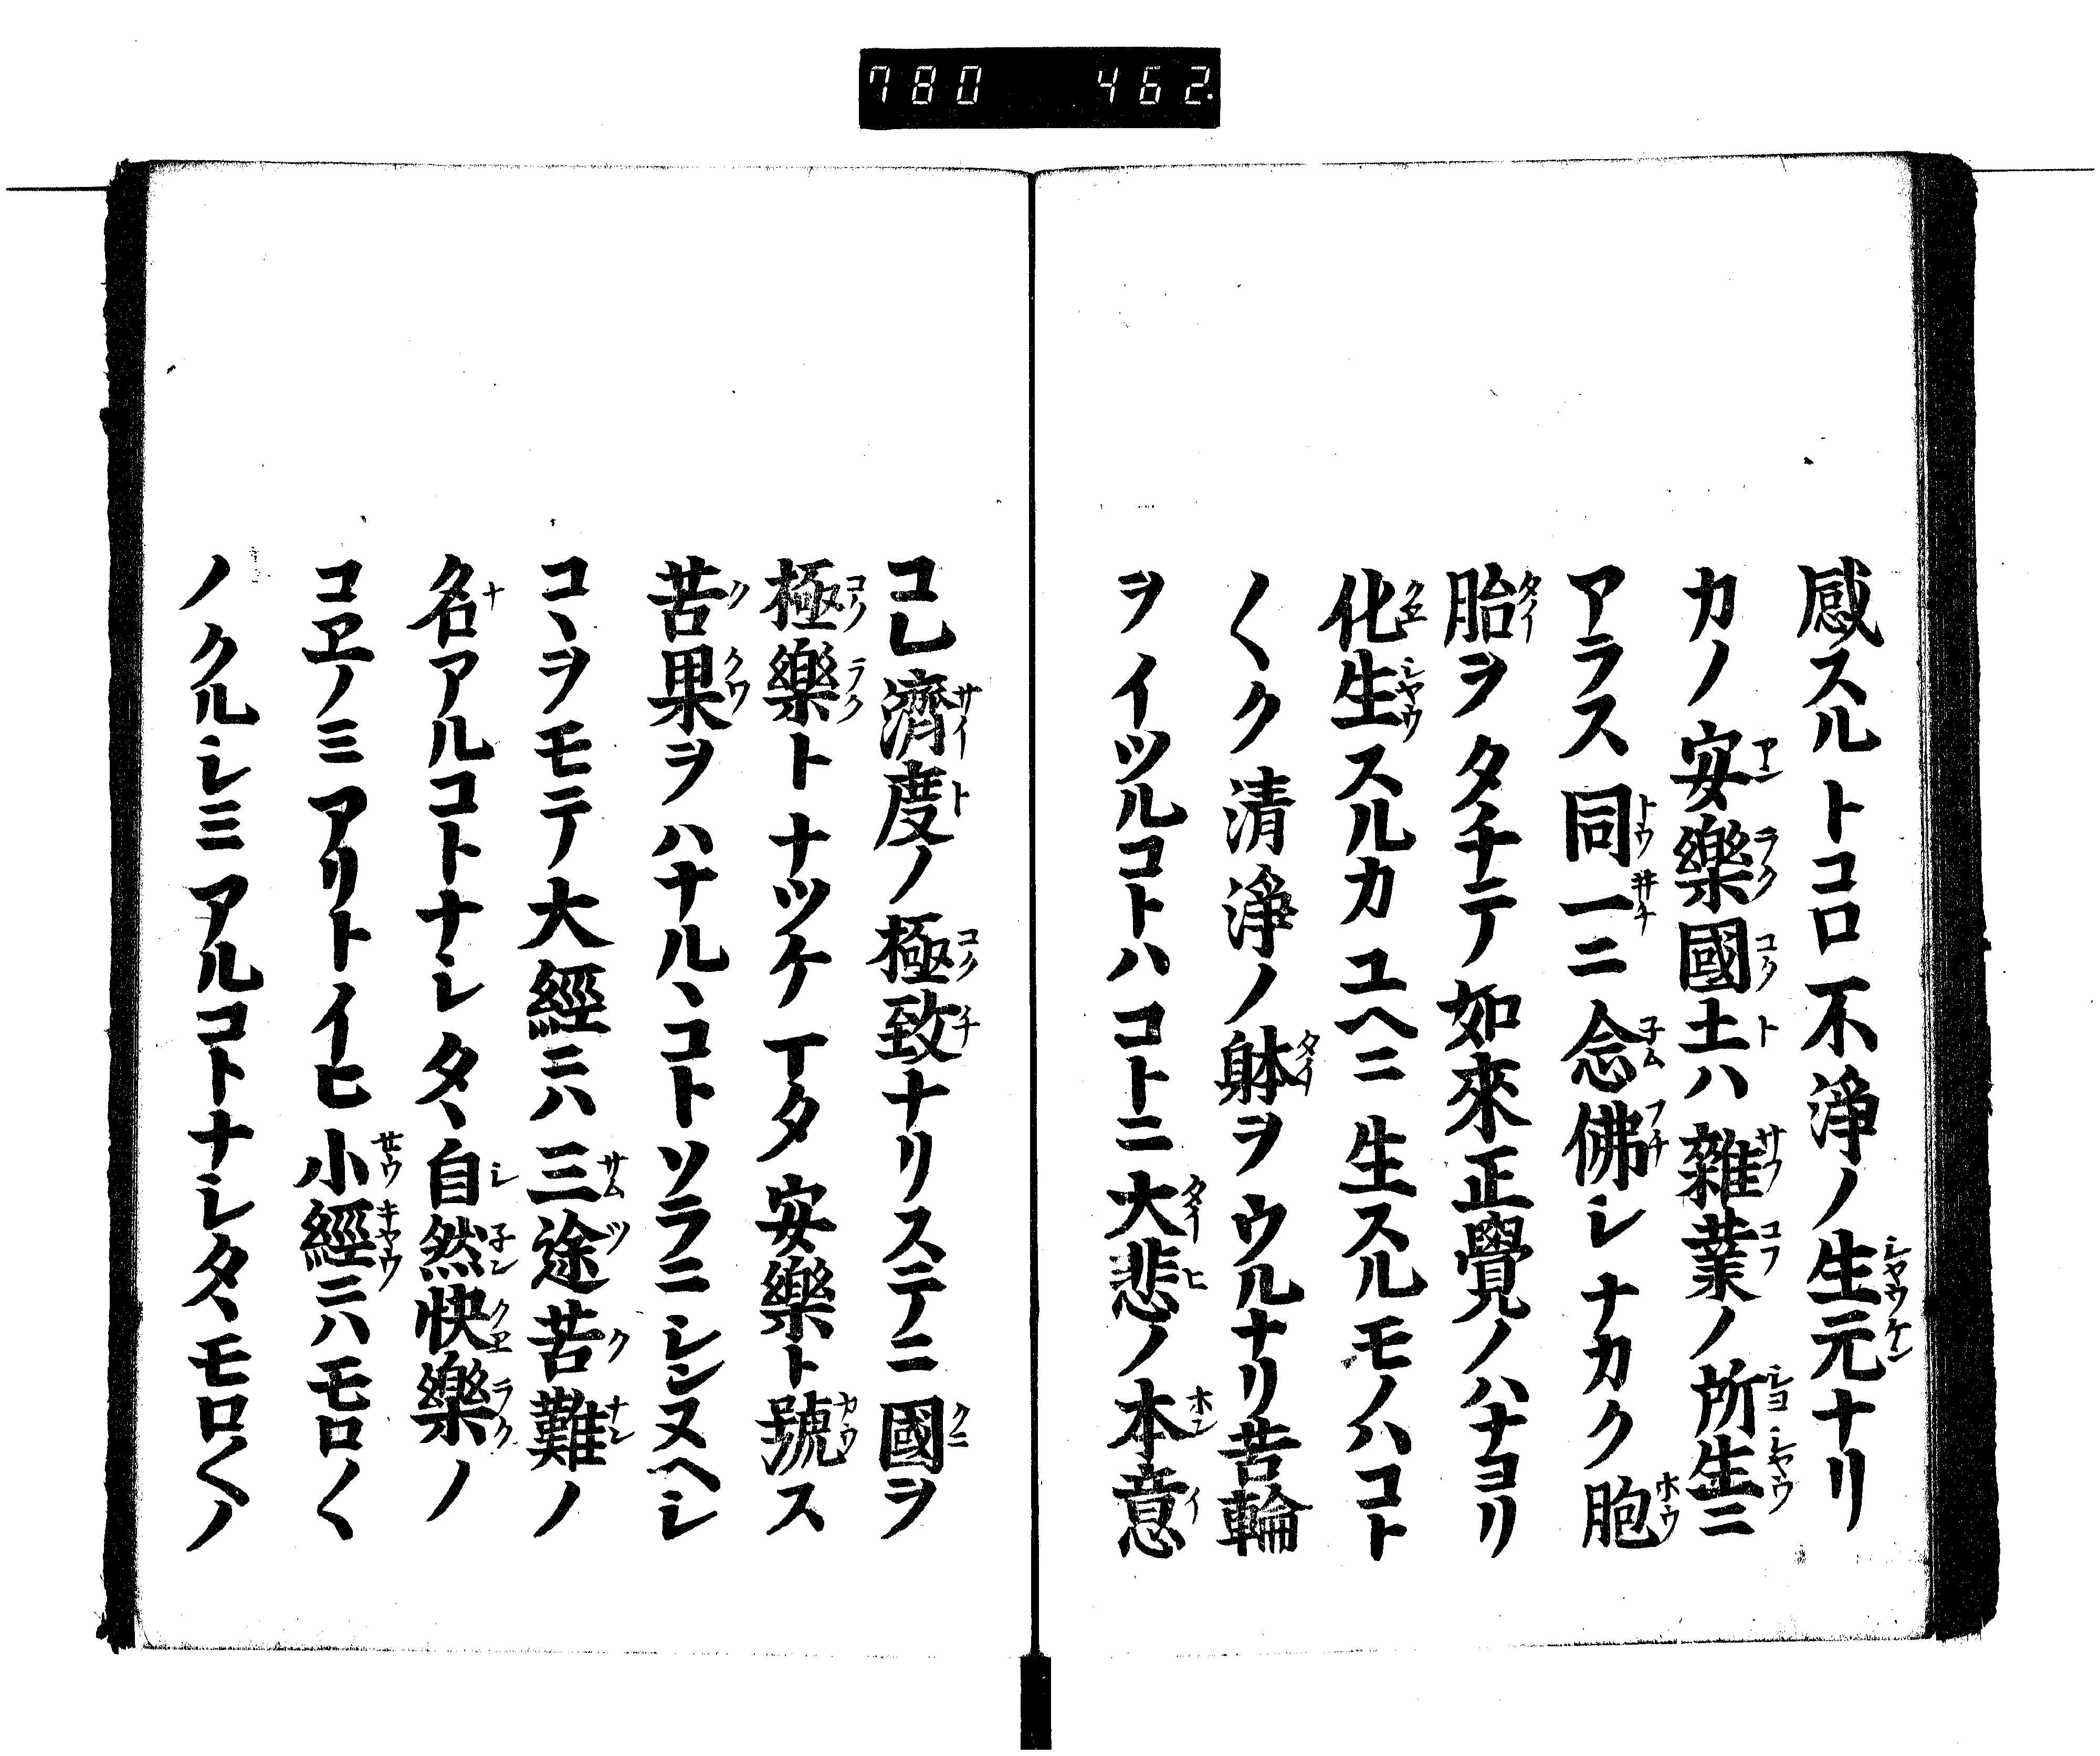 780 462.
感スルトコロ不淨ノ生元ナリ
カノ安樂國土ハ雜業ノ所生ニ
アラス同一ニ念佛シナカク胞
胎ヲタチテ如來正覺ノハナヨリ
化生スルカユヘニ生スルモノハコト
〱ク清淨ノ躰ヲウルナリ苦輪
ヲイツルコトハコトニ大悲ノ本意
コレ濟度ノ極致ナリステニ國ヲ
極樂トナツケマタ安樂ト號ス
苦果ヲハナルヽコトソラニシンヌヘシ
コヽヲモテ大經ニハ三途苦難ノ
名アルコトナシタヽ自然快樂ノ
コヱノミアリトイヒ小經ニハモロ〱
ノクルシミアルコトナシタヽモロ〱ノ